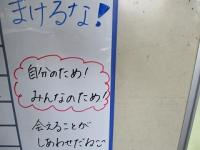 まけるな!
自分のため!
みんなのため!
会えることが
しあわせだねこ